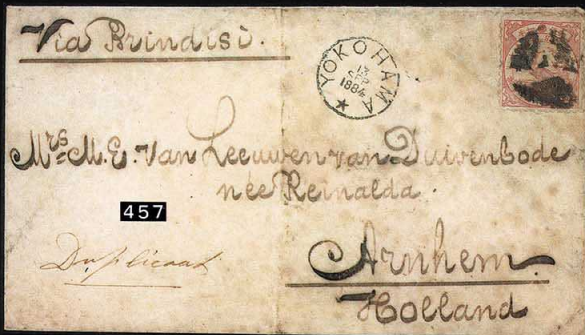 Via Brindisi.
YOKOHAMA
1884
Mrs M. E. Van Leeuwen van Duivenbode
née Reinalda.
457
Duplicaat
Arnhem.
Holland